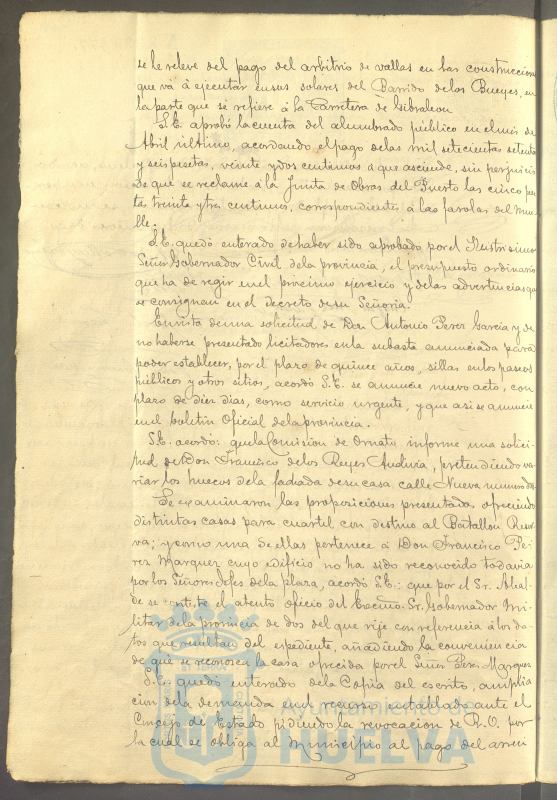 se le releve del pago del arbitrio de vallas en las construcciones
que vá á ejecutar en sus solares del Barrido de los Bueyes, en
la parte que se refiere á la Carretera de Gibraleon
S.E. aprobó la cuenta del alumbrado público en el mes de
Abril último, acordando el pago de las mil setecientas setenta
y seis pesetas, veinte y dos centimos a que asciende, sin perjuicio
de que se reclame á la Junta de Obras del Puerto las cinco pese
tas treinta y tres centimos, correspondientes á las farolas del Mue
lle.
S.E. quedó enterado de haber sido aprobado por el Ilustrisimo
Señor Gobernador Civil de la provincia, el presupuesto ordinario
que ha de regir en el procimo ejercicio y de las advertencias q.
se consignan en el decreto de su Señoria.
En vista de una solicitud de Don Antonio Perez Garcia y de
no haberse presentado licitadores en la subasta anunciada para
poder establecer, por el plazo de quince años, sillas en los paseos
públicos y otros sitios, acordó S.E. se anuncie nuevo acto, con
plazo de diez dias, como servicio urgente, y que asi se anuncie
en el boletin Oficial de la provincia.
S.E. acordó: que la Comision de Ornato informe una solici
tud de Don Francisco de los Reyes, pretendiendo va
riar los huecos de la fachada de su casa calle Nueva numero
Se examinaron las proposiciones presentadas ofreciendo
distintas casas para cuartel con destino al Batallon Reser
va; y como una de ellas pertenece á Don Francisco Pe
rez Marquez cuyo edificio no ha sido reconocido todavia
por los Señores Jefes de la plaza, acordó S.E.: que por el Sr. Alcal-
de se conteste el atento oficio del Excmo. Sr. Gobernador Mi
litar de la provincia de dos del que rije con referencia á los da
tos que resultan del expediente, añadiendo la conveniencia
de que se reconozca la casa ofrecida por el Señor Perez Marquez
S.E. quedó enterado de la Copia del escrito, amplia
cion de la demanda en el recurso entablado ante el
Consejo de Estado pidiendo la revocacion de R.O. por
la cual se obliga al Municipio al pago del arren
Ayuntamiento de
HUELVA